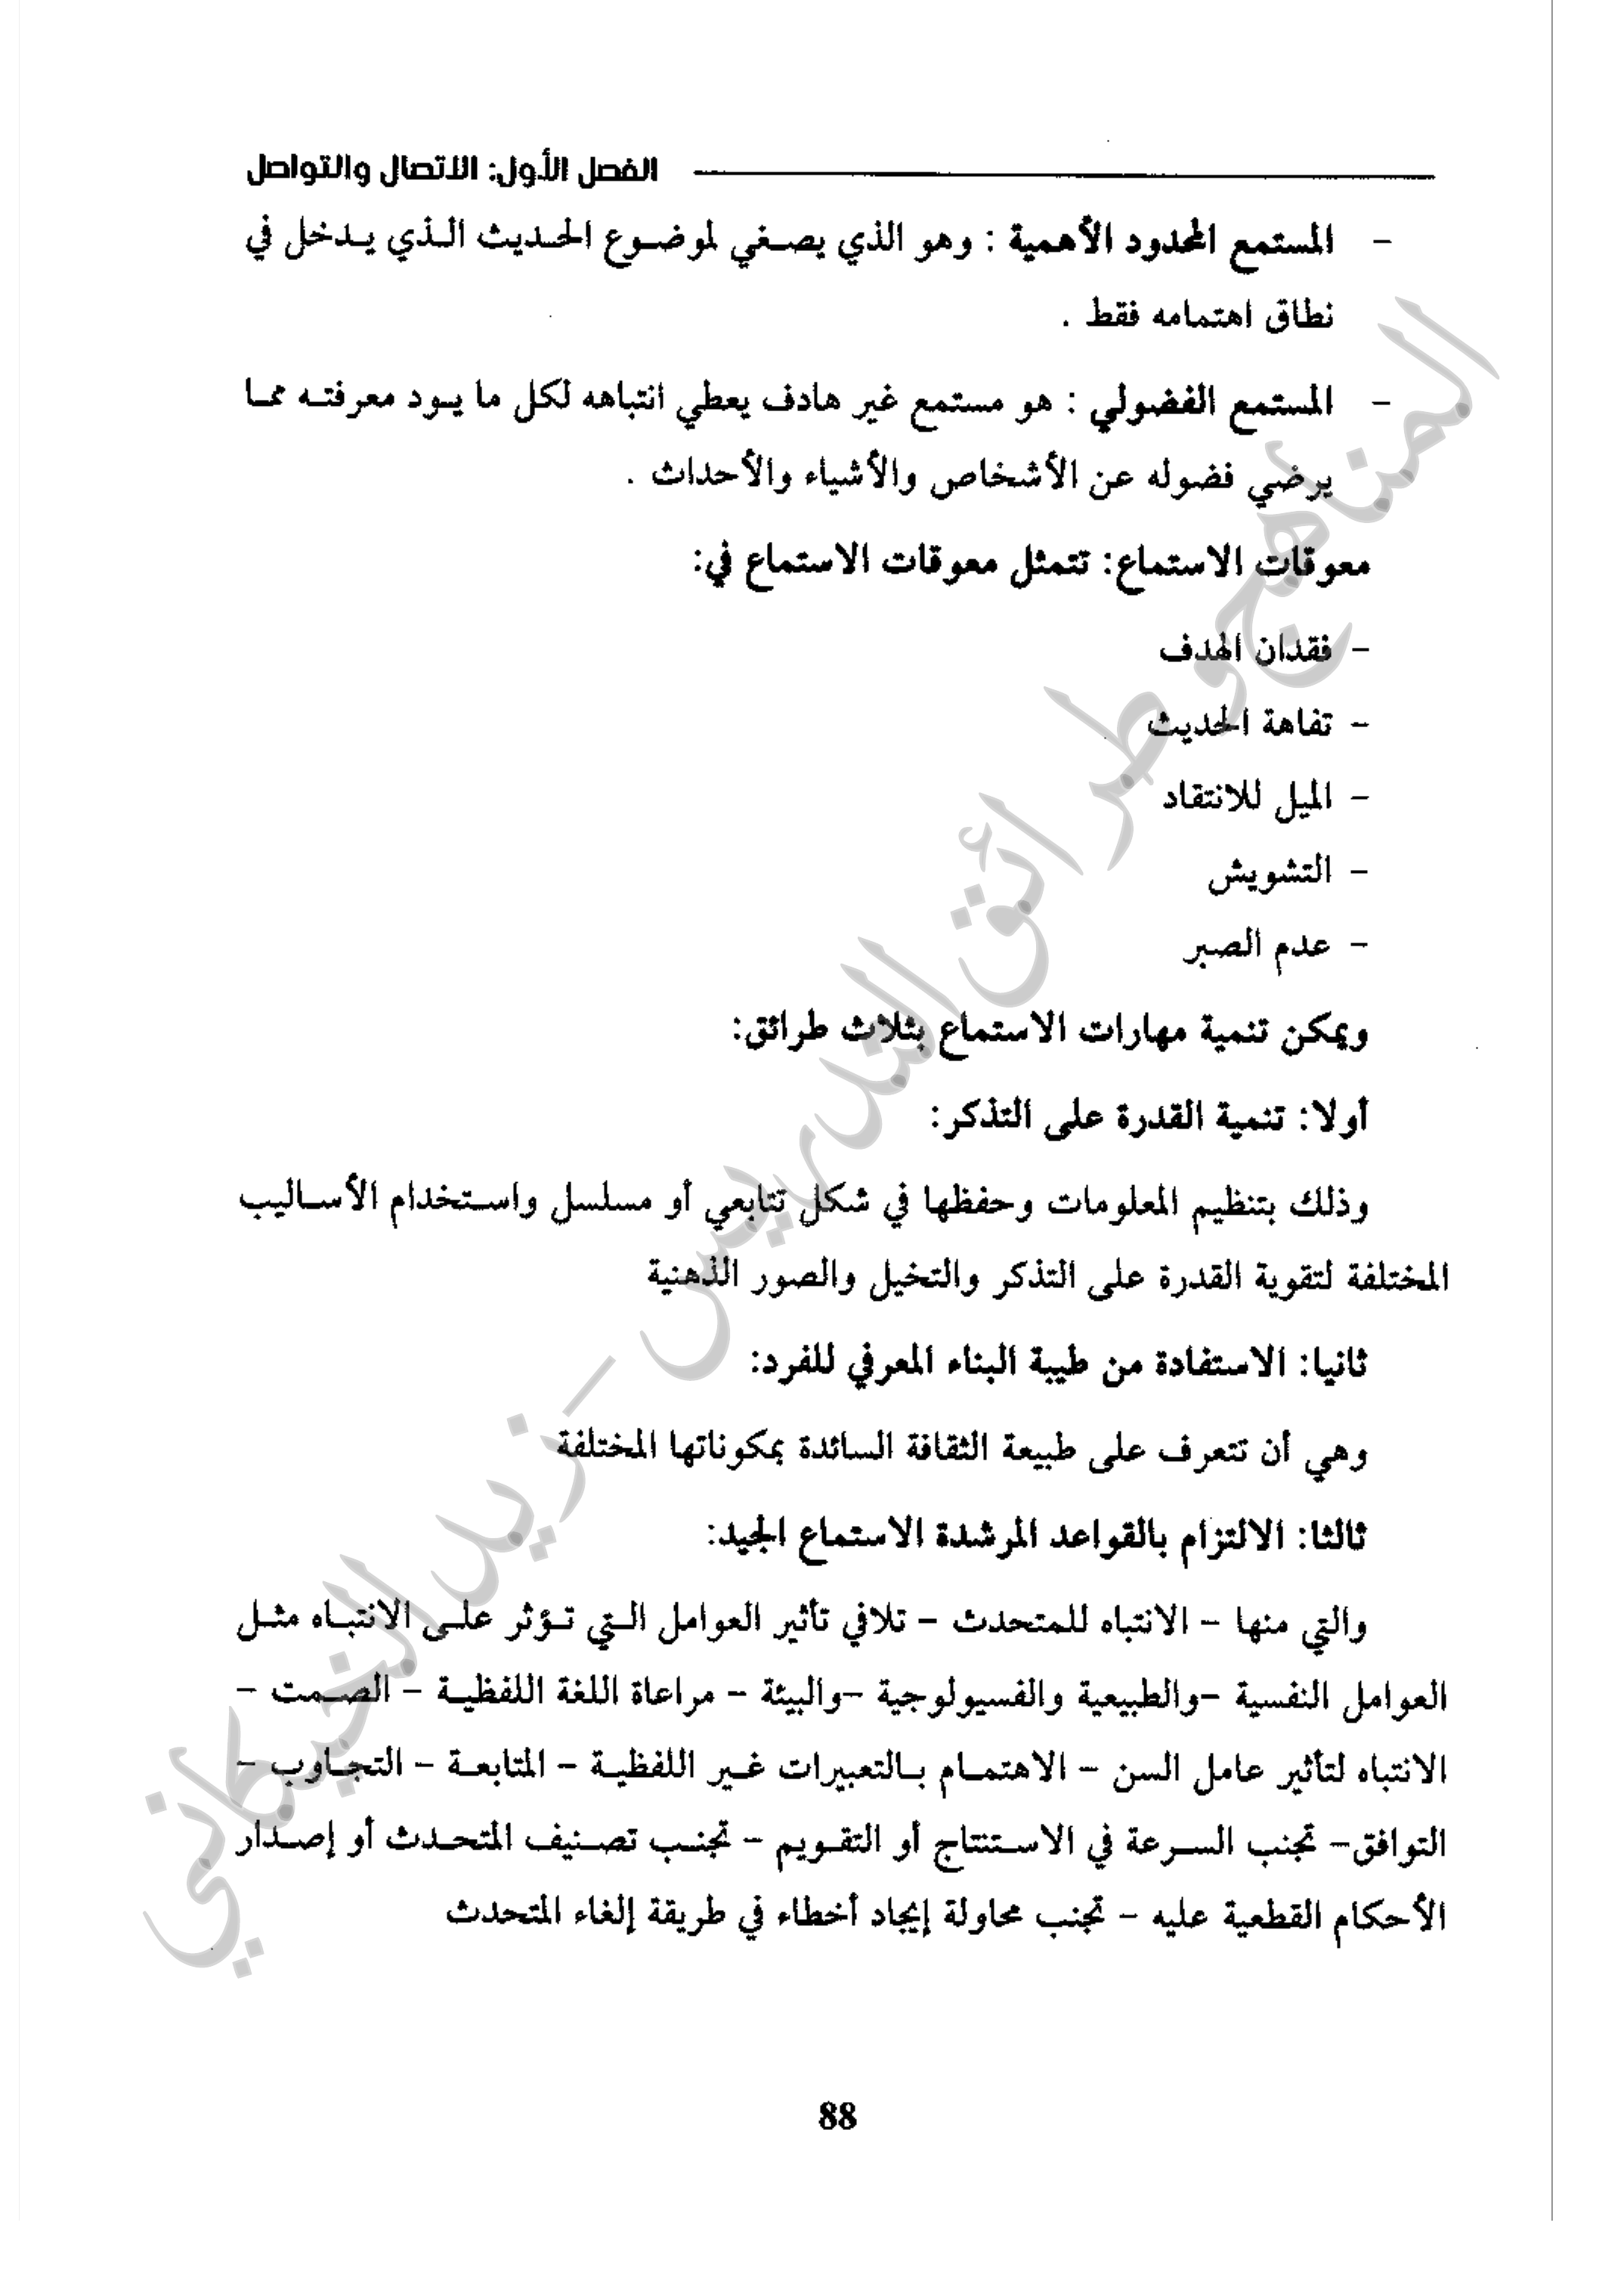 الفصل الأول: الاتصال والتواصل
- المستمع المحدود الأهمية : وهو الذي يصغي لموضوع الحديث الذي يدخل في
نطاق اهتمامه فقط .
- المستمع الفضولي : هو مستمع غير هادف يعطي انتباهه لكل ما يود معرفته مما
يرضي فضوله عن الأشخاص والأشياء والأحداث .
معوقات الاستماع: تتمثل معوقات الاستماع في:
- فقدان الهدف
- تفاهة الحديث
- الميل للانتقاد
- التشويش
- عدم الصبر
ويمكن تنمية مهارات الاستماع بثلاث طرائق:
أولا: تنمية القدرة على التذكر:
وذلك بتنظيم المعلومات وحفظها في شكل تتابعي أو مسلسل واستخدام الأساليب
المختلفة لتقوية القدرة على التذكر والتخيل والصور الذهنية
ثانيا: الاستفادة من طيبة البناء المعرفي للفرد:
وهي أن تتعرف على طبيعة الثقافة السائدة بمكوناتها المختلفة
ثالثا: الالتزام بالقواعد المرشدة الاستماع الجيد:
والتي منها - الانتباه للمتحدث - تلافي تأثير العوامل التي تؤثر على الانتباه مثل
العوامل النفسية -والطبيعية والفسيولوجية -والبيئة - مراعاة اللغة اللفظية - الصمت -
الانتباه لتأثير عامل السن - الاهتمام بالتعبيرات غير اللفظية - المتابعة - التجاوب -
التوافق- تجنب السرعة في الاستنتاج أو التقويم - تجنب تصنيف المتحدث أو إصدار
الأحكام القطعية عليه - تجنب محاولة إيجاد أخطاء في طريقة إلغاء المتحدث
88
المناهج وطرائق التدريس - زيد الخيكاني